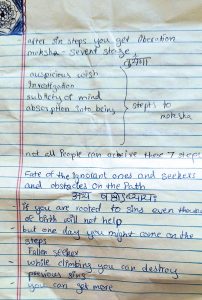 - after 7th steps you get liberation
moksha - seventh stage,
auspicious wish
investigation
subtlety of mind
absorption into being
steps to
moksha
not all people can achieve these 7 steps
Fate of the ignorant ones and seekers
and obstacles on the Path
if you are rooted to sins even thousands
of birth will not help
- but one day you might come on the
steps
- Fallen seeker
- while climbing you can destroy
previous sins
- you can get more